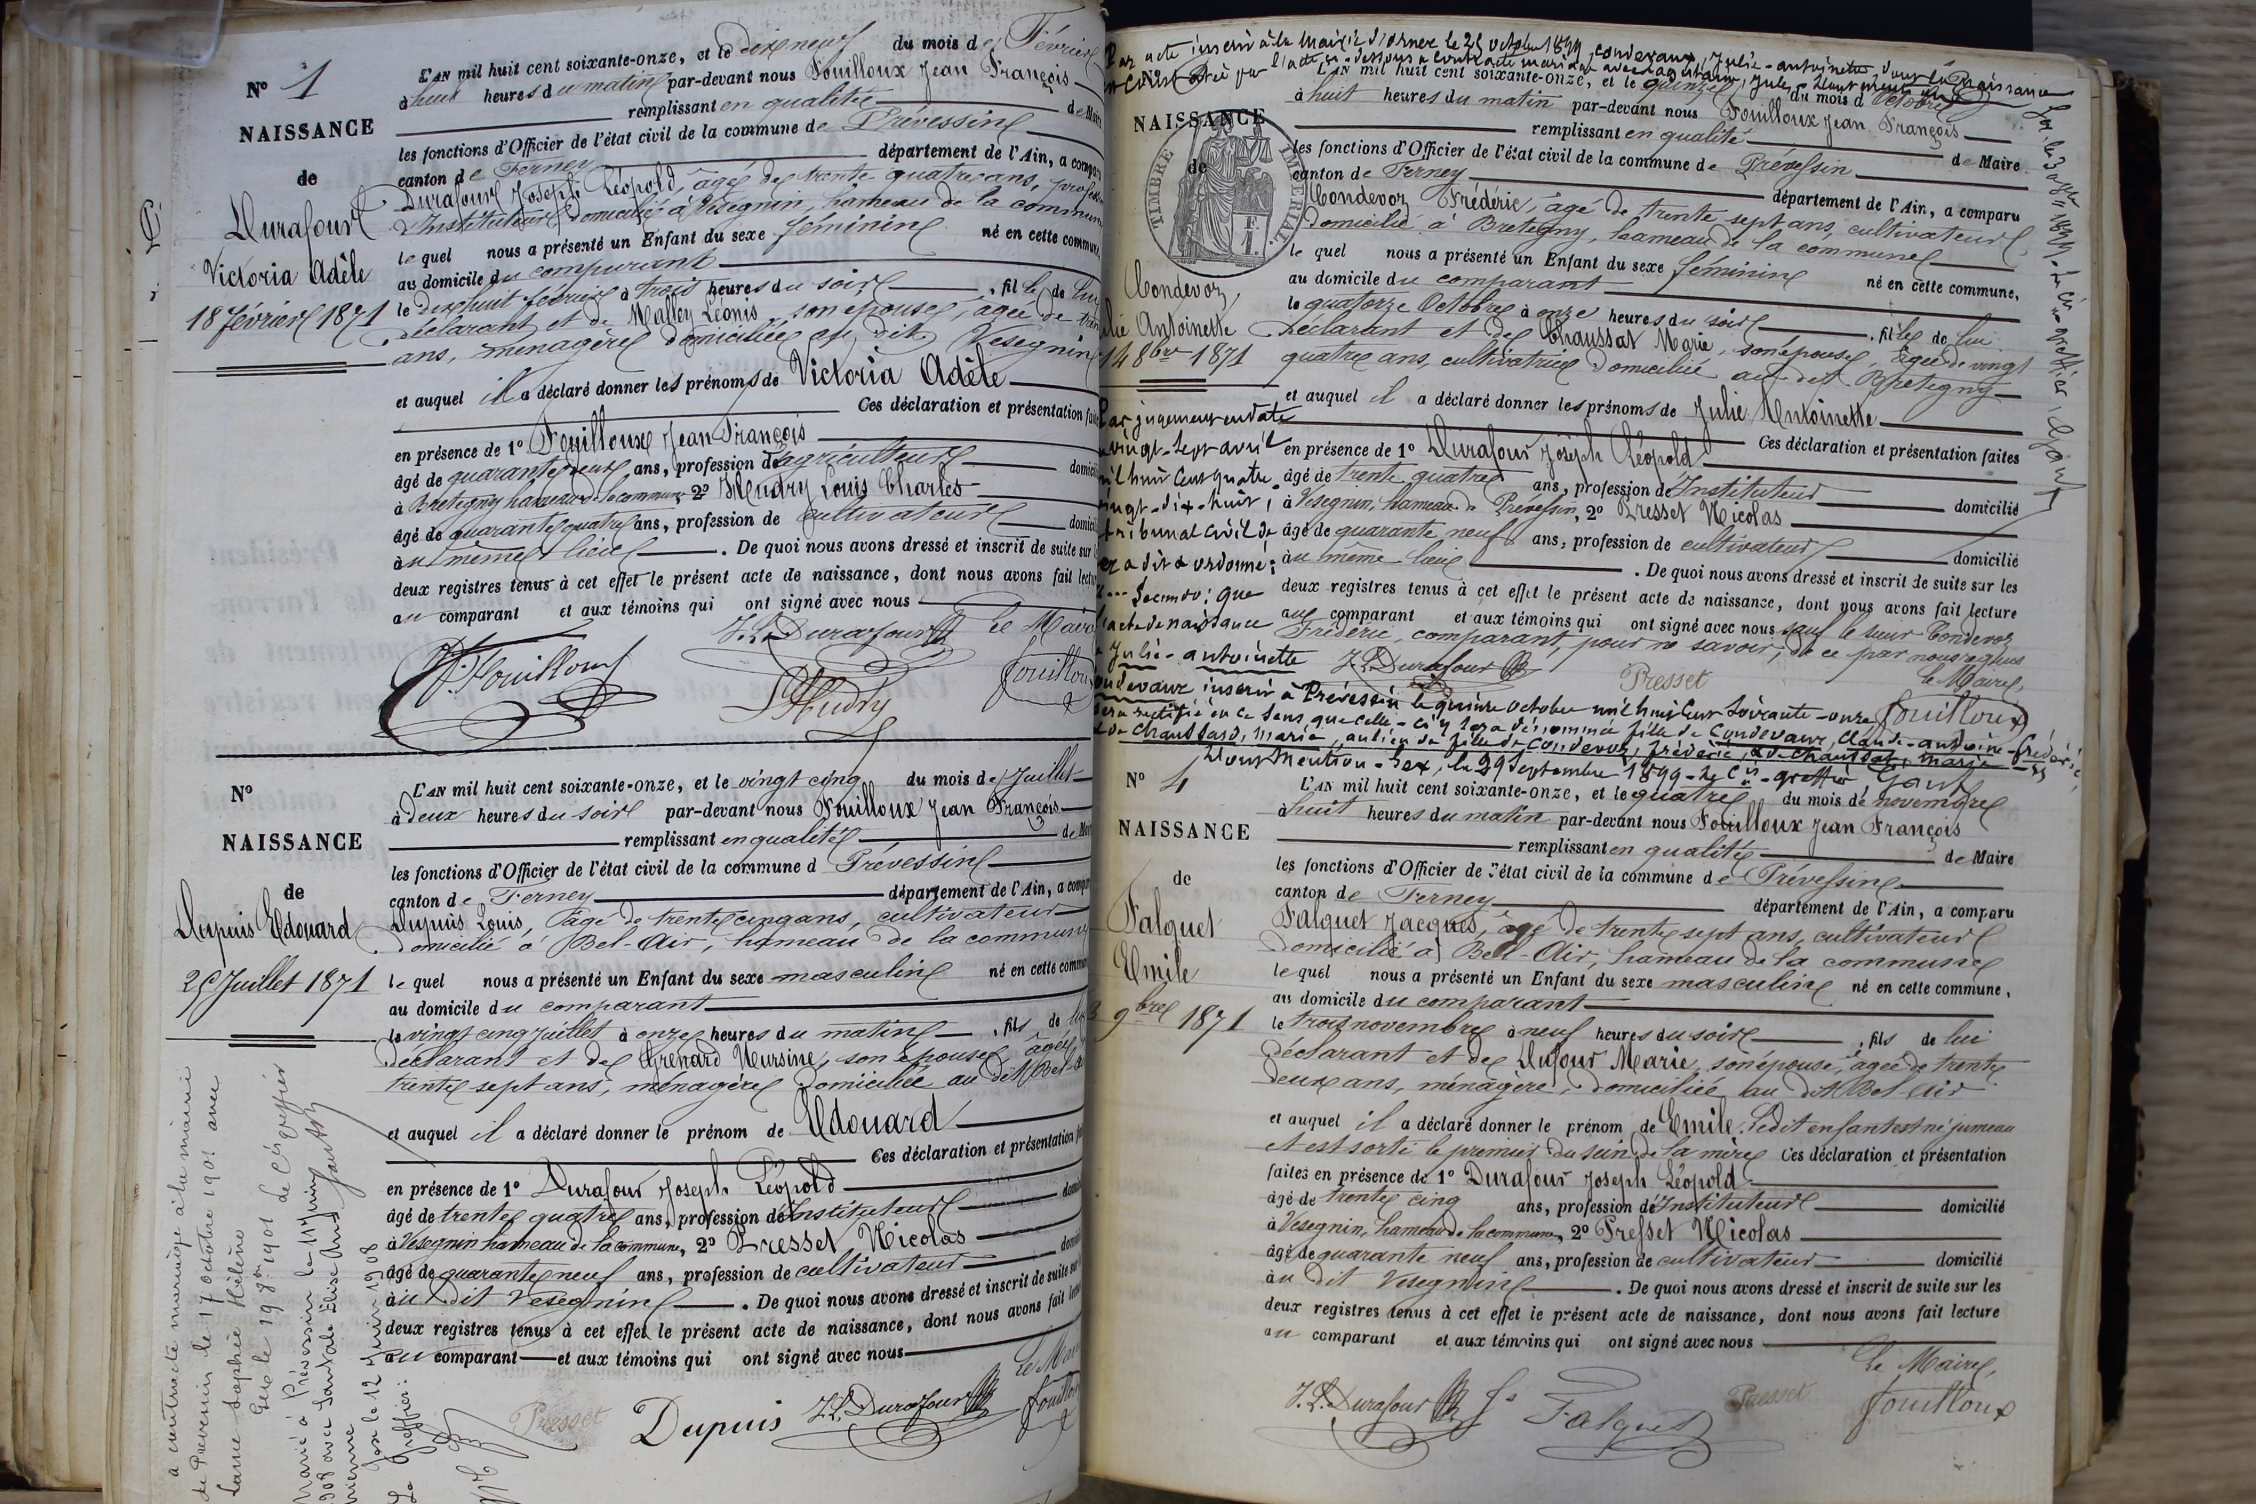 N° 1
NAISSANCE
de
Durafour
Victoria Adèle
18 février 1871
L'AN mil huit cent soixante-onze, et le dix neuf du mois de Février
à huit heures du matin par-devant nous Fouilloux Jean François
remplissant en qualité de Maire
les fonctions d'Officier de l'état civil de la commune de Prévessin
canton de Ferney département de l'Ain, a comparu
Durafour Joseph Léopold, âgé de trente quatre ans, profession
d'Instituteur domicilié à Vésegnin, hameau de la commune
le quel nous a présenté un Enfant du sexe féminin né en cette commune,
au domicile du comparant
le dix huit février à trois heures du soir, fille de lui
déclarant et de Malley Léonis, son épouse, âgée de
ans, ménagère domiciliée au dit Vesegnin
et auquel il a déclaré donner les prénoms de Victoria Adèle
Ces déclaration et présentation faites
en présence de 1° Fouilloux Jean François
âgé de quarante deux ans, profession d'agriculteur domicilié
à Bretegny hameau de la commune, 2° Mudry Louis Charles
âgé de quarante quatre ans, profession de cultivateur domicilié
au même lieu. De quoi nous avons dressé et inscrit de suite sur les
deux registres tenus à cet effet le présent acte de naissance, dont nous avons fait lecture
au comparant et aux témoins qui ont signé avec nous
J.L. Durafour le Maire
J. Fouilloux
L. Mudry
fouilloux
N°
NAISSANCE
de
Dupuis Edouard
25 Juillet 1871
L'AN mil huit cent soixante-onze, et le vingt cinq du mois de Juillet
à deux heures du soir par-devant nous Fouilloux Jean François
remplissant en qualité de Maire
les fonctions d'Officier de l'état civil de la commune d Prévessin
canton de Ferney département de l'Ain, a comparu
Dupuis Louis, âgé de trente cinq ans, cultivateur
domicilié à Bel-Air, hameau de la commune
le quel nous a présenté un Enfant du sexe masculin né en cette commune
au domicile du comparant
le vingt cinq juillet à onze heures du matin, fils de lui
déclarant et de Grenard Ursine, son épouse, âgée
trente sept ans, ménagère domiciliée au dit Bel-air
et auquel il a déclaré donner le prénom de Edouard
Ces déclaration et présentation faites
en présence de 1° Durafour Joseph Léopold
âgé de trente quatre ans, profession d'Instituteur domicilié
à Vesegnin hameau de la commune, 2° Presset Nicolas
âgé de quarante neuf ans, profession de cultivateur domicilié
au dit Vesegnin. De quoi nous avons dressé et inscrit de suite sur
deux registres tenus à cet effet le présent acte de naissance, dont nous avons fait lecture
au comparant et aux témoins qui ont signé avec nous
le Maire
Presset Dupuis J.L. Durafour fouilloux
a contracté mariage à la mairie
de Prevessin le 17 octobre 1901 avec
Sophie Hélène
Gex le 19 8bre 1901 le Cis greffier
Marié à Prévessin le 11 Juin
1908 avec
Gex le 12 Juin 1908
Le Greffier:
Par acte inscrit à la Mairie d'ornex le 25 octobre 1899, condevaux, Julie-antoinette, dont la Naissance
NAISSANCE
de
Condevoz
Julie Antoinette
14 8bre 1871
TIMBRE IMPÉRIAL
L'AN mil huit cent soixante-onze, et le quinze du mois d'Octobre
à huit heures du matin par-devant nous Fouilloux Jean François
remplissant en qualité de Maire
les fonctions d'Officier de l'état civil de la commune de Prévessin
canton de Ferney département de l'Ain, a comparu
Condevoz Frédéric, âgé de trente sept ans, cultivateur
domicilié à Bretegny, hameau de la commune
le quel nous a présenté un Enfant du sexe féminin né en cette commune,
au domicile du comparant
le quatorze Octobre à onze heures du soir, fille de lui
déclarant et de Chaussat Marie, son épouse, âgée de vingt
quatre ans, cultivatrice domiciliée au dit Bretegny
et auquel il a déclaré donner les prénoms de Julie Antoinette
Ces déclaration et présentation faites
en présence de 1° Durafour Joseph Léopold
âgé de trente quatre ans, profession d'Instituteur domicilié
à Vesegnin, hameau de Prévessin, 2° Presset Nicolas
âgé de quarante neuf ans, profession de cultivateur domicilié
au même lieu. De quoi nous avons dressé et inscrit de suite sur les
deux registres tenus à cet effet le présent acte de naissance, dont nous avons fait lecture
au comparant et aux témoins qui ont signé avec nous sauf le sieur Condevoz
Frédéric, comparant, pour ne savoir, de ce par nous requis
J.L. Durafour Presset le Maire,
fouilloux
Par jugement en date
vingt-sept avril
mil huit cent quatre-
vingt-dix-huit,
tribunal civil de
Gex a dit & ordonné:
Secundo: que
l'acte de naissance
Julie-antoinette
condevaux inscrit à Prévessin le quinze octobre mil huit cent soixante-onze
sera rectifié en ce sens que celle-ci y sera dénommée fille de Condevaux, Claude-antoine-frédéric
& de Chaussard, marie, au lieu de fille de Condevoz, frédéric, & de Chaussat, marie
Dont Mention - Gex, le 29 Septembre 1899 - Le Cis-greffier
N° 4
NAISSANCE
de
Falquet
Emile
3 9bre 1871
L'AN mil huit cent soixante-onze, et le quatre du mois de novembre
à huit heures du matin par-devant nous Fouilloux Jean François
remplissant en qualité de Maire
les fonctions d'Officier de l'état civil de la commune de Prévessin
canton de Ferney département de l'Ain, a comparu
Falquet Jacques, âgé de trente sept ans, cultivateur
domicilié à Bel-Air, hameau de la commune
le quel nous a présenté un Enfant du sexe masculin né en cette commune,
au domicile du comparant
le trois novembre à neuf heures du soir, fils de lui
déclarant et de Dufour Marie, son épouse, âgée de trente
deux ans, ménagère, domiciliée au dit Bel-Air
et auquel il a déclaré donner le prénom de Emile. Ledit enfant est né jumeau
et est sorti le premier du sein de la mère Ces déclaration et présentation
faites en présence de 1° Durafour Joseph Léopold
âgé de trente cinq ans, profession d'Instituteur domicilié
à Vesegnin, hameau de la commune, 2° Presset Nicolas
âgé de quarante neuf ans, profession de cultivateur domicilié
au dit Vesegnin. De quoi nous avons dressé et inscrit de suite sur les
deux registres tenus à cet effet le présent acte de naissance, dont nous avons fait lecture
au comparant et aux témoins qui ont signé avec nous
Le Maire,
J.L. Durafour Falquet Presset fouilloux